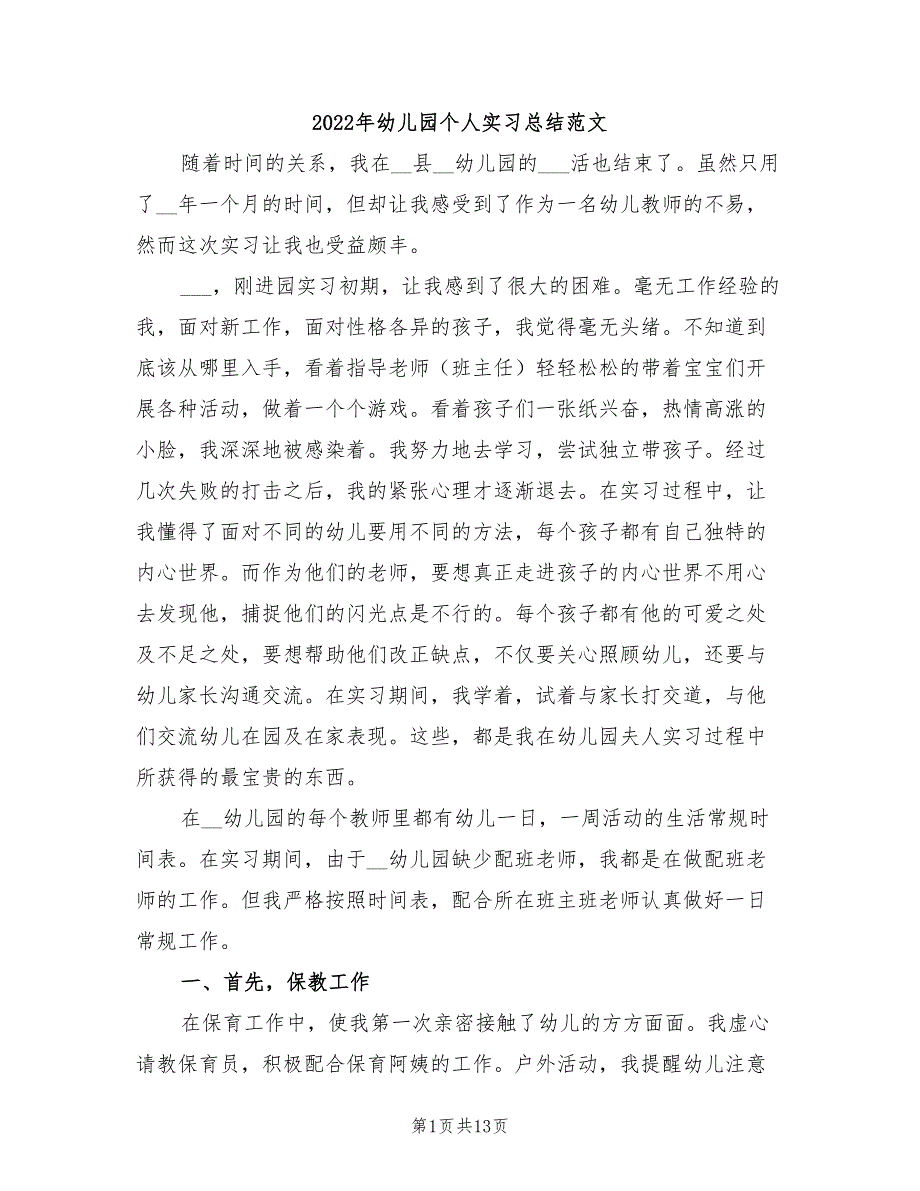 2022年幼儿园个人实习总结范文
随着时间的关系，我在__县__幼儿园的___活也结束了。虽然只用
了__年一个月的时间，但却让我感受到了作为一名幼儿教师的不易，
然而这次实习让我也受益颇丰。
___，刚进园实习初期，让我感到了很大的困难。毫无工作经验的
我，面对新工作，面对性格各异的孩子，我觉得毫无头绪。不知道到
底该从哪里入手，看着指导老师（班主任）轻轻松松的带着宝宝们开
展各种活动，做着一个个游戏。看着孩子们一张纸兴奋，热情高涨的
小脸，我深深地被感染着。我努力地去学习，尝试独立带孩子。经过
几次失败的打击之后，我的紧张心理才逐渐退去。在实习过程中，让
我懂得了面对不同的幼儿要用不同的方法，每个孩子都有自己独特的
内心世界。而作为他们的老师，要想真正走进孩子的内心世界不用心
去发现他，捕捉他们的闪光点是不行的。每个孩子都有他的可爱之处
及不足之处，要想帮助他们改正缺点，不仅要关心照顾幼儿，还要与
幼儿家长沟通交流。在实习期间，我学着，试着与家长打交道，与他
们交流幼儿在园及在家表现。这些，都是我在幼儿园夫人实习过程中
所获得的最宝贵的东西。
在__幼儿园的每个教师里都有幼儿一日，一周活动的生活常规时
间表。在实习期间，由于__幼儿园缺少配班老师，我都是在做配班老
师的工作。但我严格按照时间表，配合所在班主班老师认真做好一日
常规工作。
一、首先，保教工作
在保育工作中，使我第一次亲密接触了幼儿的方方面面。我虚心
请教保育员，积极配合保育阿姨的工作。户外活动，我提醒幼儿注意
第1页共13页